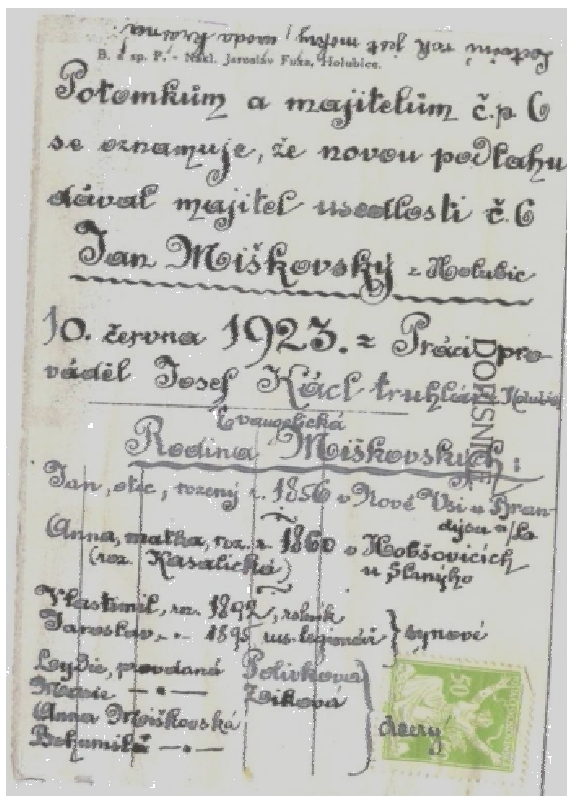 B. a sp. P. - Nákl. Jaroslav Fuxa, Holubice.
Potomkům a majitelům č.p 6
se oznamuje, že novou podlahu
dával majitel usedlosti č.6
Jan Miškovský z Holubic
10. června 1923. = Práci pro-
váděl Josef Kácl truhlář z Holubic
DOPISNICE
Evangelická
Rodina Miškovských:
Jan, otec, rozený r. 1856 v Nové Vsi u Bran-
dýsa n/L
Anna, matka, roz. r. 1860 v Hobšovicích
(roz. Kasalická) u Slaného
Vlastimil, roz. 1892, rolník
Jaroslav, -"- 1895 rus. legionář } synové
Lydie, provdaná Polívková
Marie -"- Zoiková
Anna Miškovská
Bohumila -"-
dcery
50